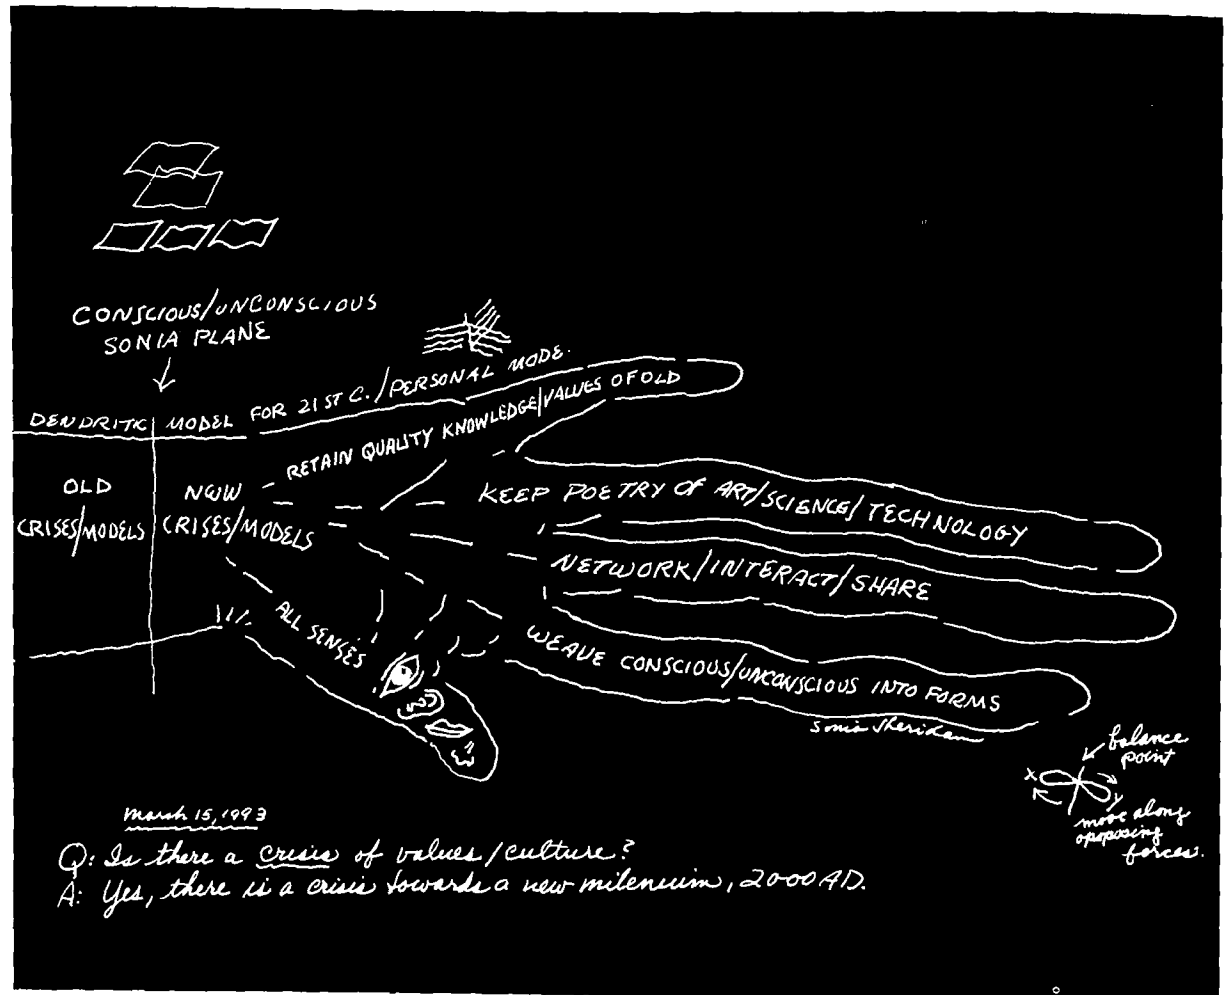 CONSCIOUS/UNCONSCIOUS
SONIA PLANE
DENDRITIC MODEL FOR 21ST C./PERSONAL MODE.
RETAIN QUALITY KNOWLEDGE/VALUES OF OLD
OLD
CRISES/MODELS
NEW
CRISES/MODELS
KEEP POETRY OF ART/SCIENCE/TECHNOLOGY
NETWORK/INTERACT/SHARE
WEAVE CONSCIOUS/UNCONSCIOUS INTO FORMS
ALL SENSES
Sonia Sheridan
balance
point
X
Y
move along
opoposing
forces.
March 15, 1993
Q: Is there a crisis of values/culture?
A: Yes, there is a crisis towards a new mileneuim, 2000 AD.